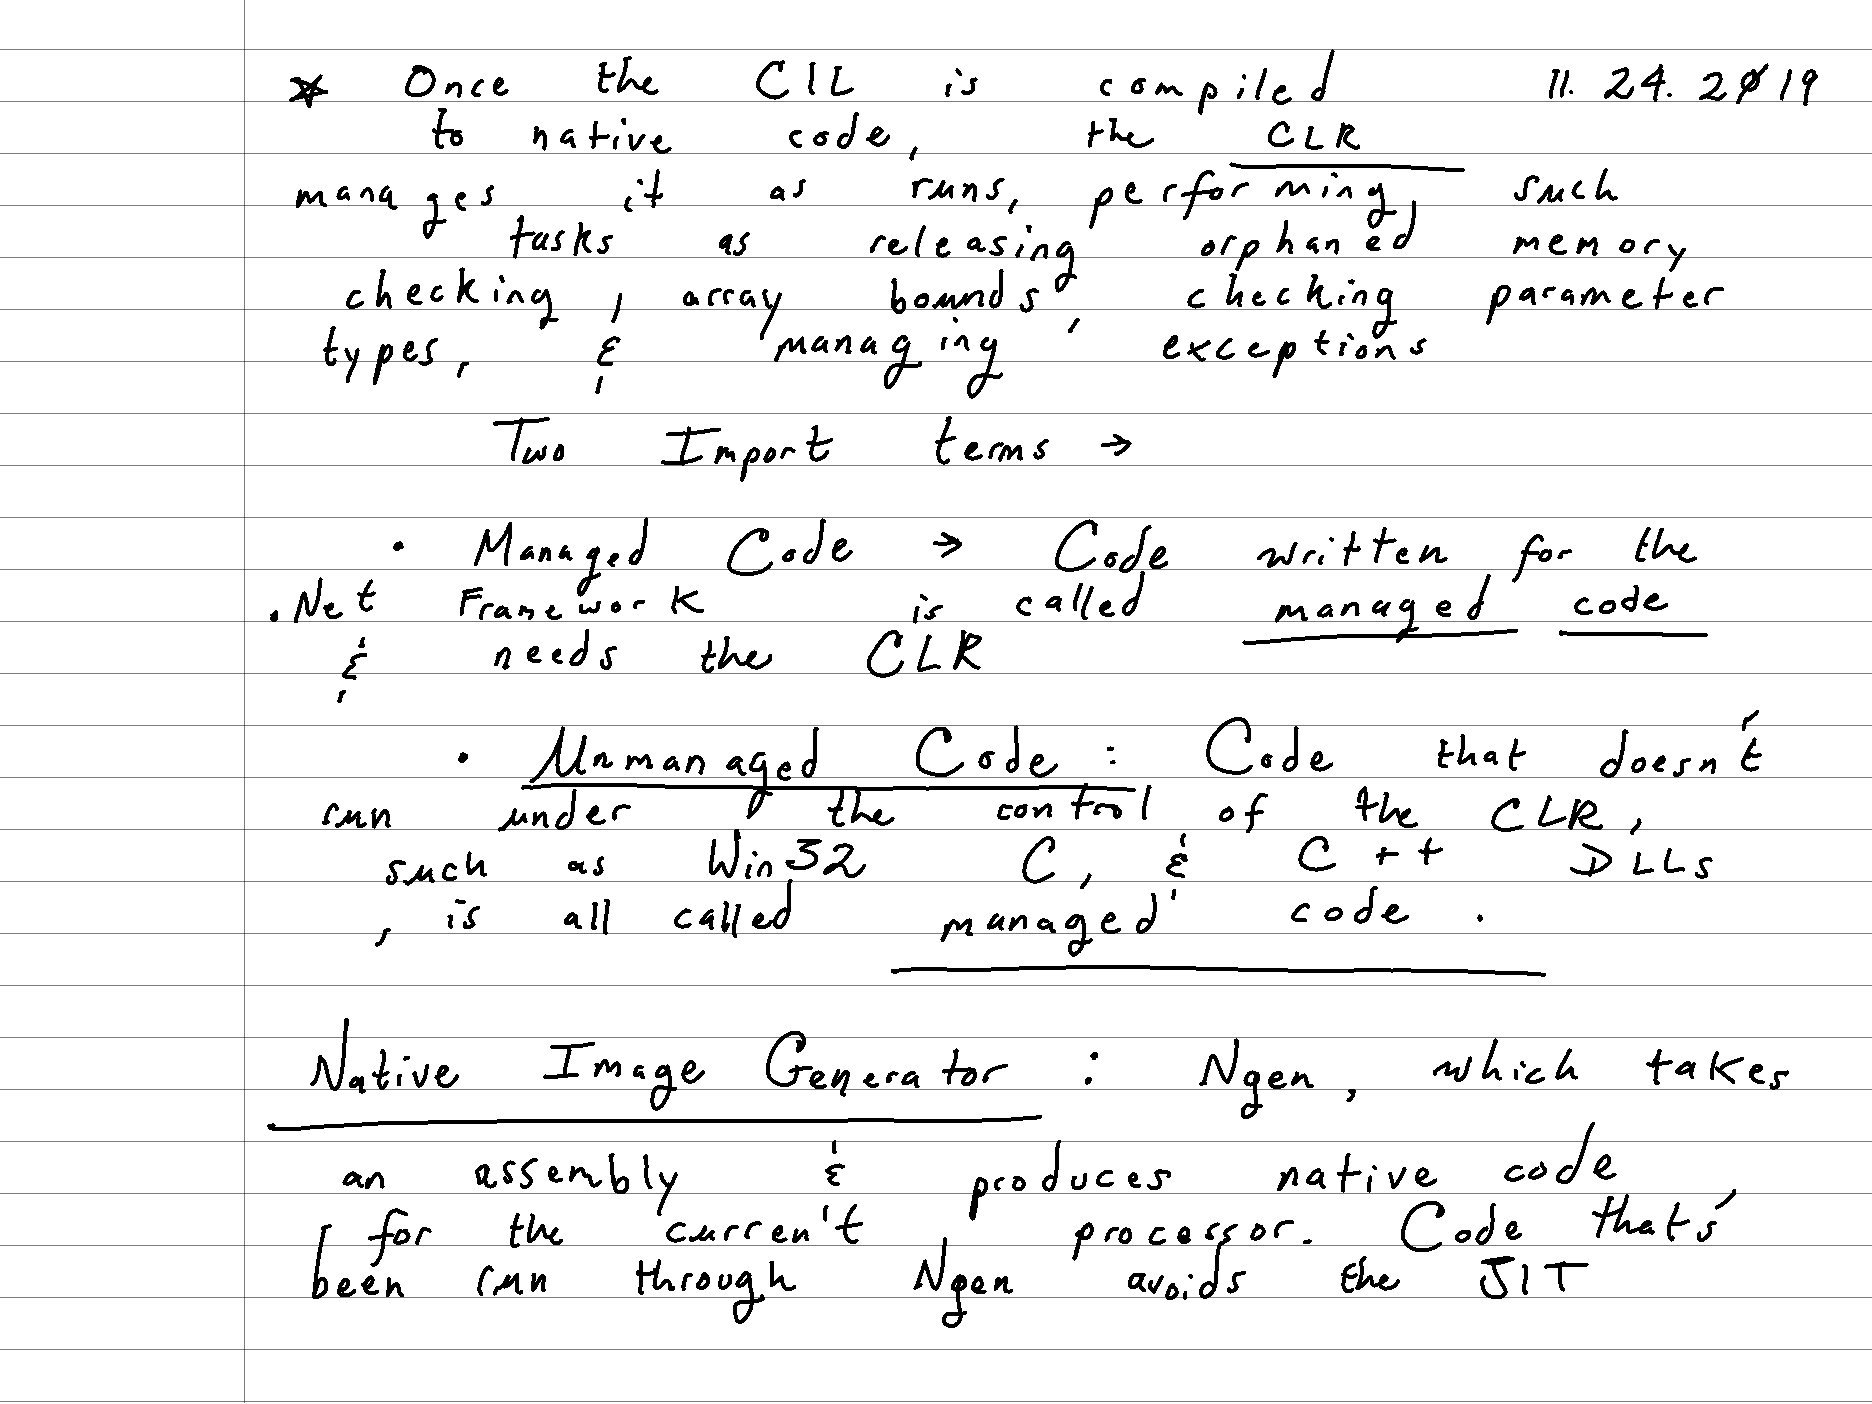 ☆ Once the CIL is compiled 11. 24. 2019
to native code, the CLR
manages it as runs, performing such
tasks as releasing orphaned memory,
checking, array bounds, checking parameter
types, & managing exceptions
Two Import terms →
• Managed Code → Code written for the
.Net Framework is called managed code
& needs the CLR
• Unmanaged Code : Code that doesn't
run under the control of the CLR,
such as Win32 C, & C++ DLLs
, is all called managed' code .
Native Image Generator : Ngen, which takes
an assembly & produces native code
for the curren't processor. Code that's
been run through Ngen avoids the JIT